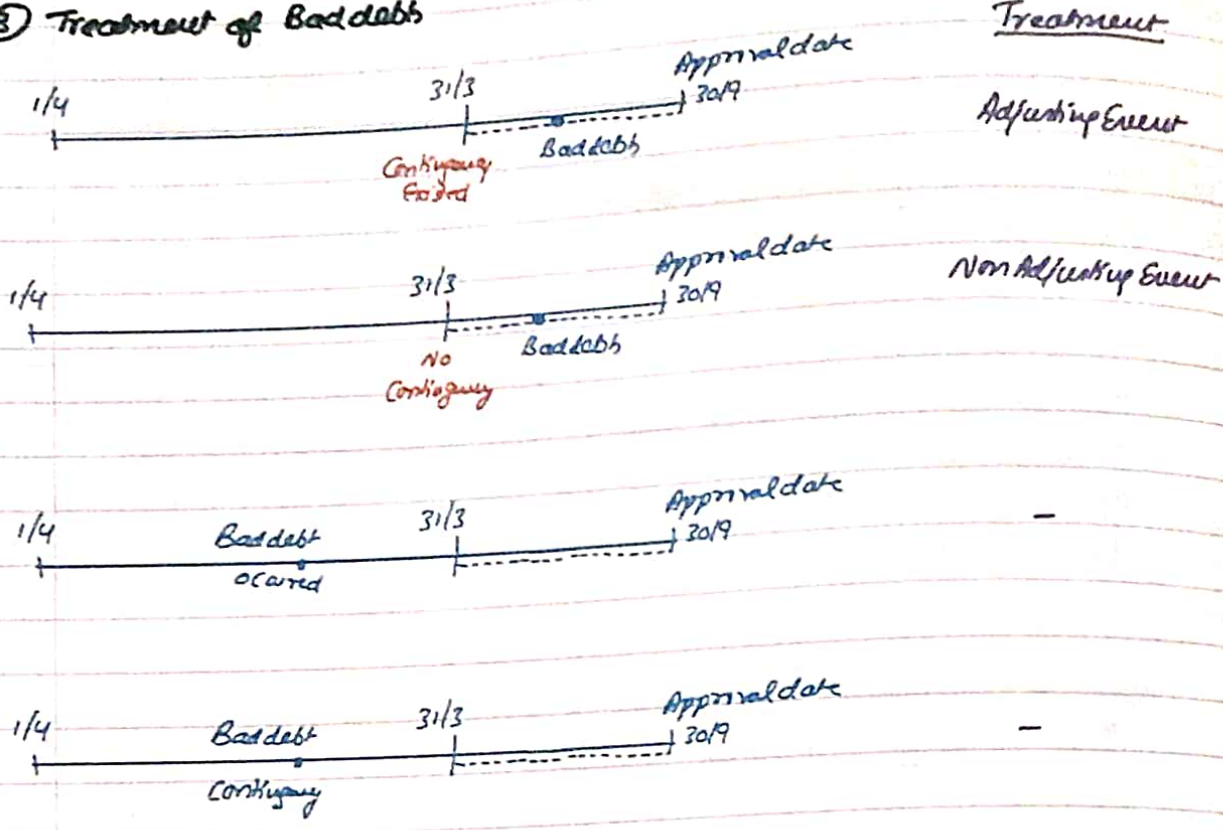 3) Treatment of Baddebts
Treatment
1/4
31/3
Approval date
30/9
Contingency
Existed
Baddebts
Adjusting Event
1/4
31/3
Approval date
30/9
No
Contingency
Baddebts
Non Adjusting Event
1/4
Baddebt
ocurred
31/3
Approval date
30/9
-
1/4
Baddebt
Contingency
31/3
Approval date
30/9
-